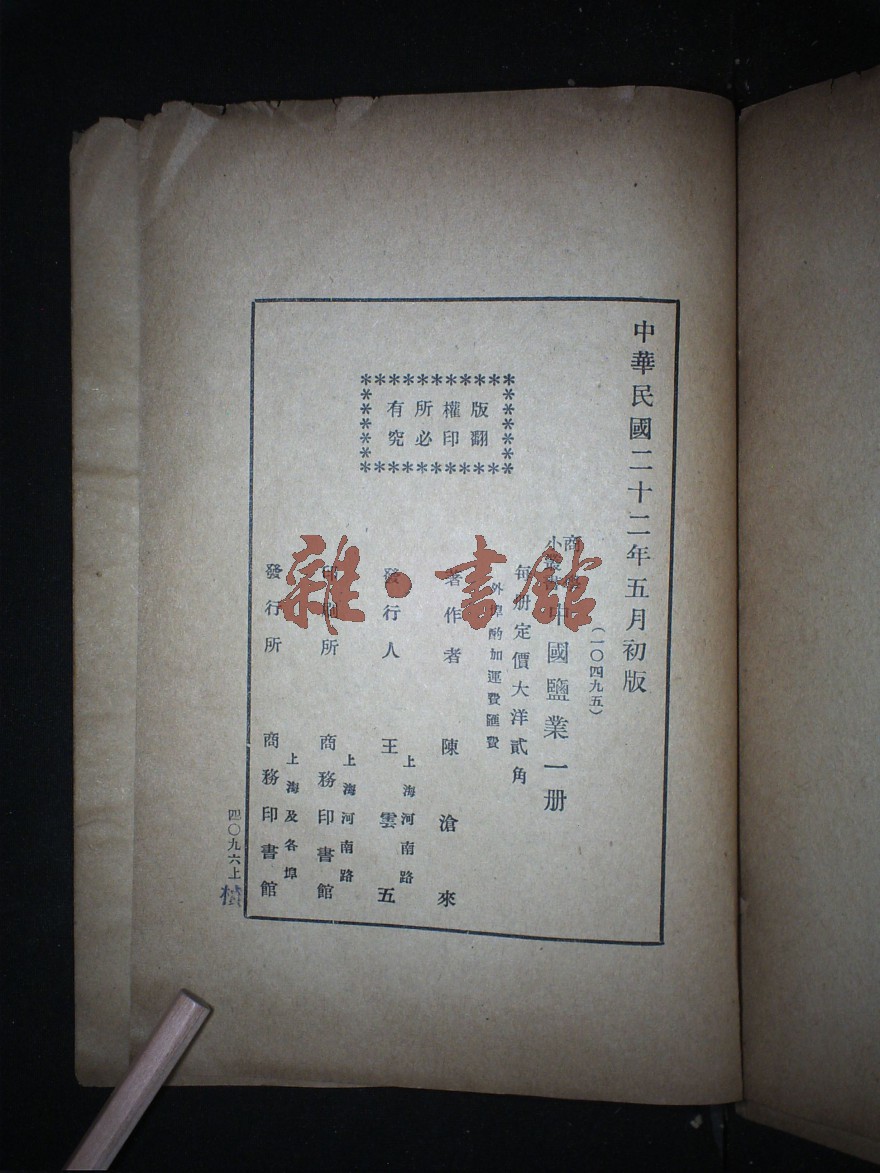 中華民國二十二年五月初版
(一〇四九五)
商學
小叢書
中國鹽業一册
每册定價大洋貳角
外埠酌加運費匯費
版權所有
翻印必究
著作者 陳滄來
發行人 王雲五
上海河南路
印刷所 商務印書館
上海河南路
發行所 商務印書館
上海及各埠
四〇九六上
雜·書館